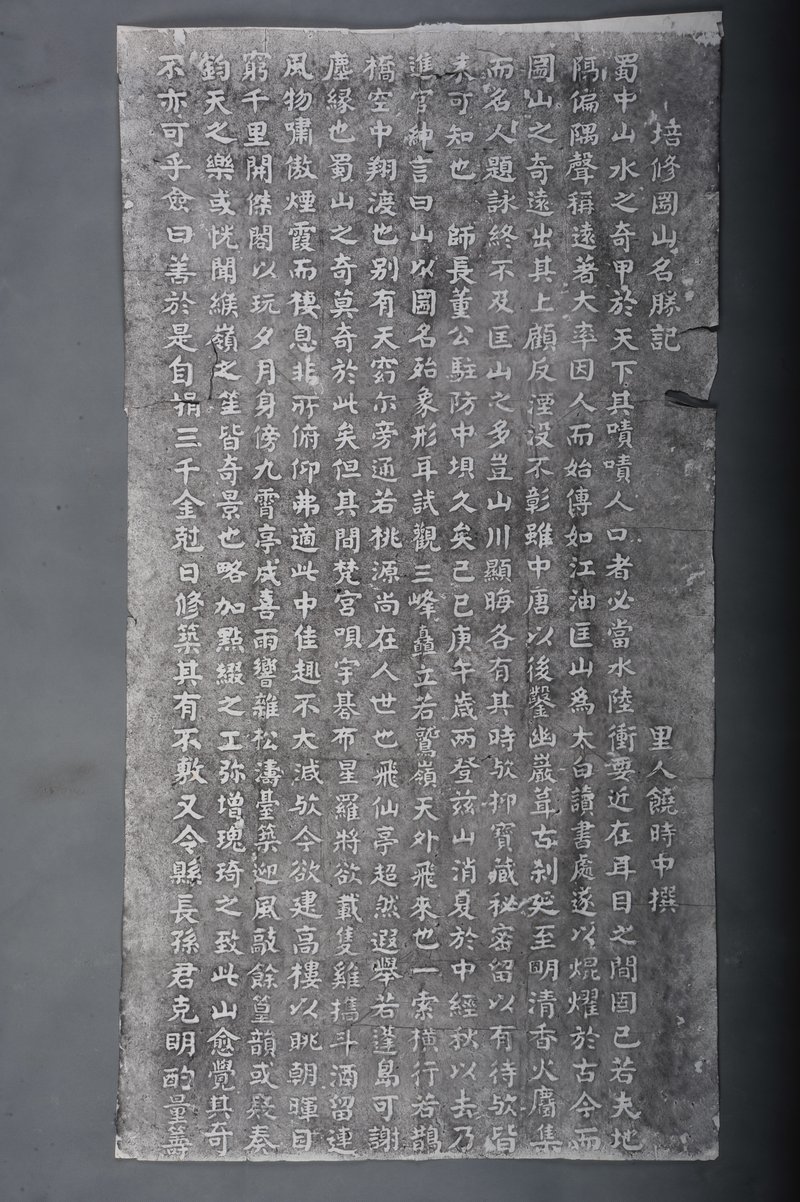 培修圌山名勝記
里人饒時中撰
蜀中山水之奇甲於天下其嘖嘖人口者必當水陸衝要近在耳目之間固已若夫地
隔偏隅聲稱遠著大率因人而始傳如江油匡山爲太白讀書處遂以焜燿於古今而
圌山之奇遠出其上顧反湮没不彰雖中唐以後鑿幽巖葺古刹爰至明清香火麕集
而名人題詠終不及匡山之多豈山川顯晦各有其時歟抑寶藏秘密留以有待歟皆
未可知也 師長董公駐防中壩久矣己巳庚午歲两登茲山消夏於中經秋以去乃
進官紳言曰山以圌名殆象形耳試觀三峰矗立若鷲嶺天外飛來也一索横行若鵲
橋空中翔渡也别有天窈尔旁通若桃源尚在人世也飛仙亭超然遐舉若蓬島可謝
塵縁也蜀山之奇莫奇於此矣但其間梵宫唄宇碁布星羅將欲載隻雞攜斗酒留連
風物嘯傲煙霞而棲息非所俯仰弗適此中佳趣不大減歟今欲建高樓以眺朝暉目
窮千里開傑閣以玩夕月身傍九霄亭成喜雨響雜松濤臺築迎風敲餘篁韻或疑奏
鈞天之樂或恍聞緱嶺之笙皆奇景也略加點綴之工弥增瑰琦之致此山愈覺其奇
不亦可乎僉曰善於是自捐三千金尅日修築其有不敷又令縣長孫君克明酌量籌